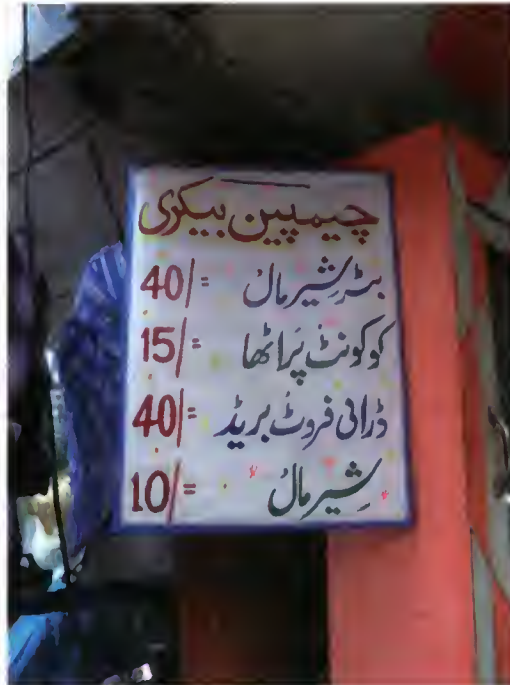 چیمپین بیکری
بٹر شیرمال 40/=
کوکونٹ پَراٹھا 15/=
ڈرائی فروٹ بریڈ 40/=
شیرمال 10/=